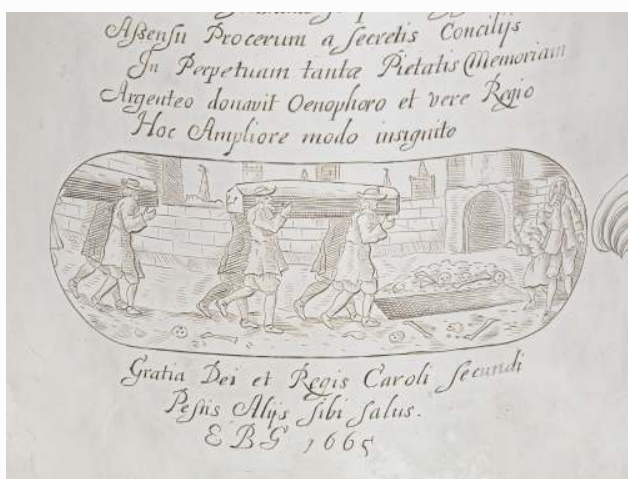 Assensu Procerum a secretis Concilijs
In Perpetuam tantæ Pietatis Memoriam
Argenteo donavit Oenophoro et vere Regio
Hoc Ampliore modo insignito
Gratia Dei et Regis Caroli Secundi
Pestis Alijs Sibi Salus.
E B G 1665